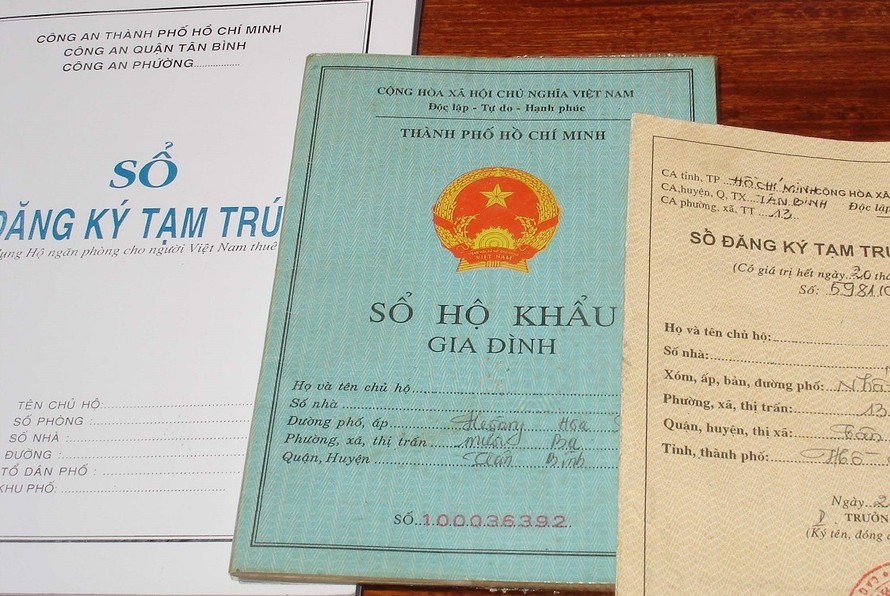 CÔNG AN THÀNH PHỐ HỒ CHÍ MINH
CÔNG AN QUẬN TÂN BÌNH
CÔNG AN PHƯỜNG..................
SỔ
ĐĂNG KÝ TẠM TRÚ
dụng Hộ ngăn phòng cho người Việt Nam thuê
TÊN CHỦ HỘ:
SỐ PHÒNG :
SỐ NHÀ :
ĐƯỜNG :
TỔ DÂN PHỐ :
KHU PHỐ:
CỘNG HÒA XÃ HỘI CHỦ NGHĨA VIỆT NAM
Độc lập - Tự do - Hạnh phúc
THÀNH PHỐ HỒ CHÍ MINH
VIỆT NAM
SỔ HỘ KHẨU
GIA ĐÌNH
Họ và tên chủ hộ
Số nhà
Đường phố, ấp Hoàng Hoa
Phường, xã, thị trấn mười Ba
Quận, Huyện Tân Bình
SỐ 100036392
CA tỉnh, TP HỒ CHÍ MINH CỘNG HÒA XÃ
CA, huyện, Q. TX TÂN BÌNH Độc lập
CA phường, xã, TT 13
SỔ ĐĂNG KÝ TẠM TRÚ
(Có giá trị hết ngày 20 thá
Số: 5981
Họ và tên chủ hộ:
Số nhà:
Xóm, ấp, bản, đường phố:
Phường, xã, thị trấn: 13
Quận, huyện, thị xã: Tân
Tỉnh, thành phố: HCO
Ngày 2
TRƯỞN
(Ký tên, đóng